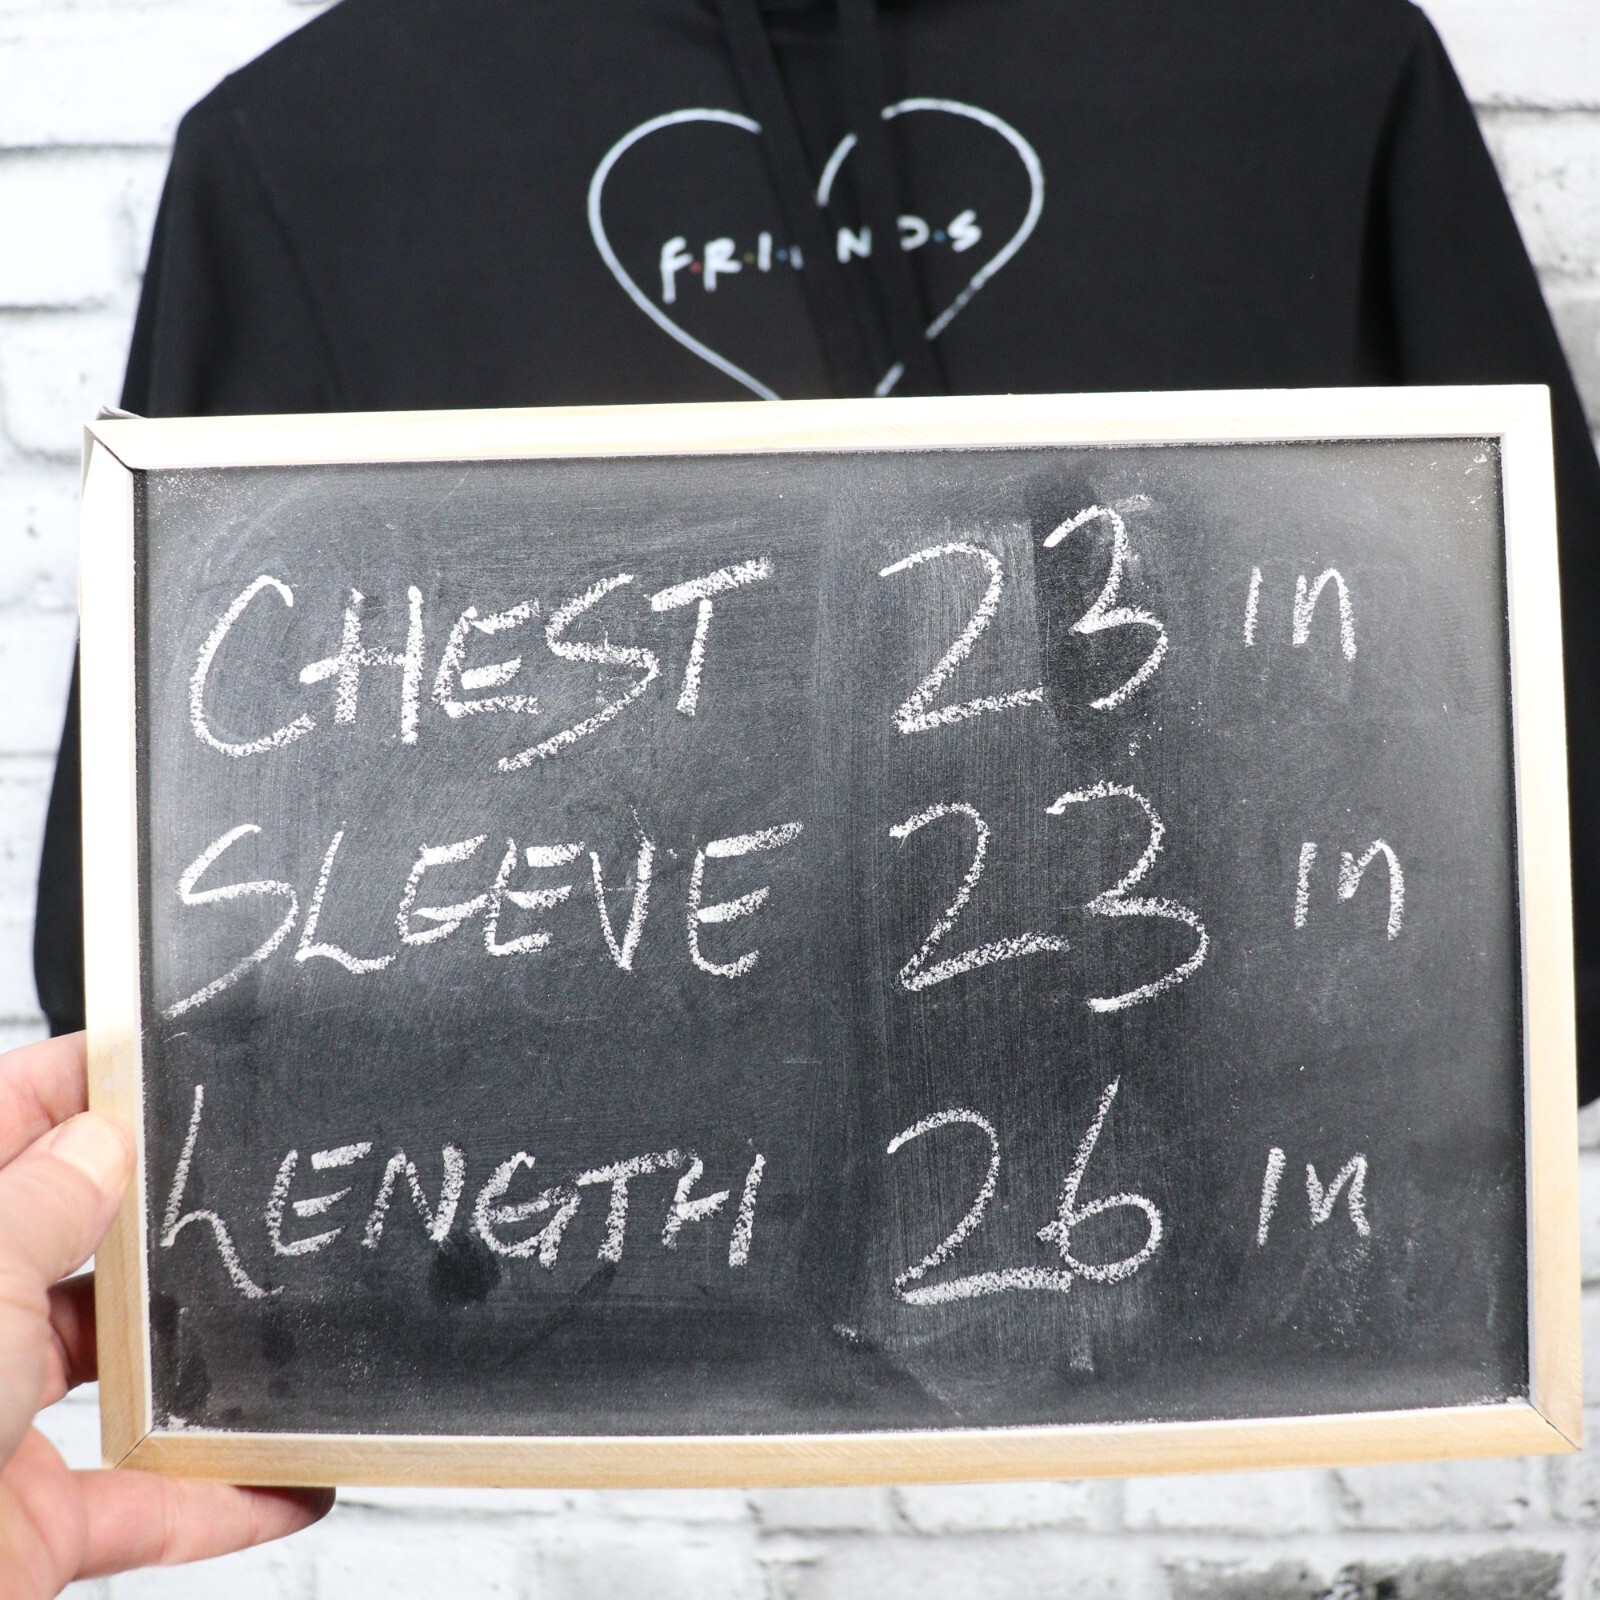 F.R.I.E.N.D.S
CHEST 23 in
SLEEVE 23 in
LENGTH 26 in